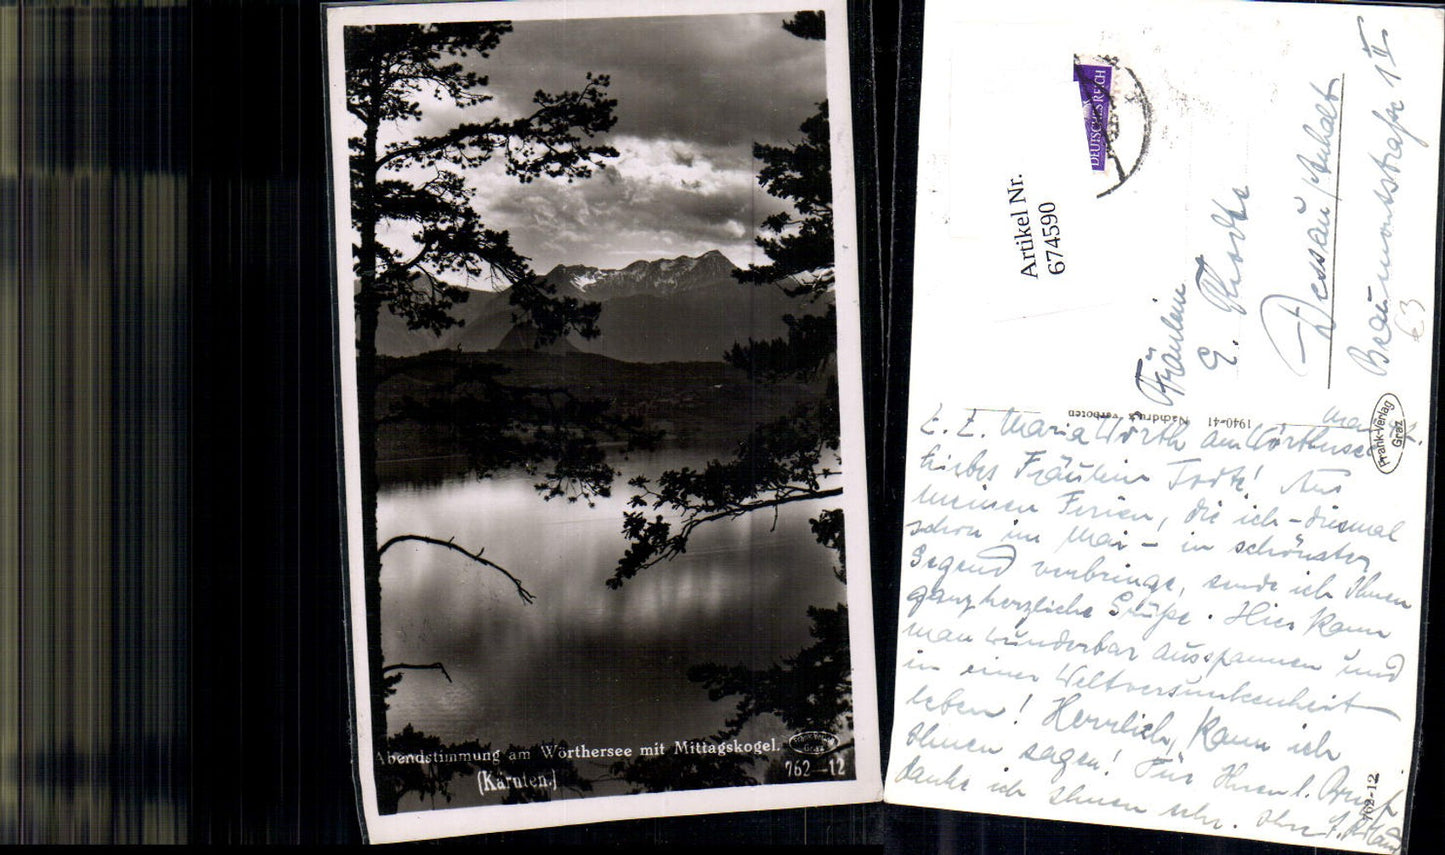 Abendstimmung am Wörthersee mit Mittagskogel.
(Kärnten.)
Graz
762-12
DEUTSCHES REICH
Artikel Nr.
674590
Fräulein
E. Thodte
Dessau/Anhalt
Braumonsstraße 1
€3
Nachdruck verboten
1940-41
Frank-Verlag
Graz
z. Z. Maria Wörth am Wörthersee
Liebes Fräulein Todte! Aus
meinen Ferien, die ich - diesmal
schon im Mai - in schönster
Gegend verbringe, sende ich Ihnen
ganz herzliche Grüße. Hier kann
man wunderbar ausspannen und
in einer Weltversunkenheit
leben! Herrlich, kann ich
Ihnen sagen! Für Ihren l. Brief
danke ich Ihnen sehr. Ihre
762-12